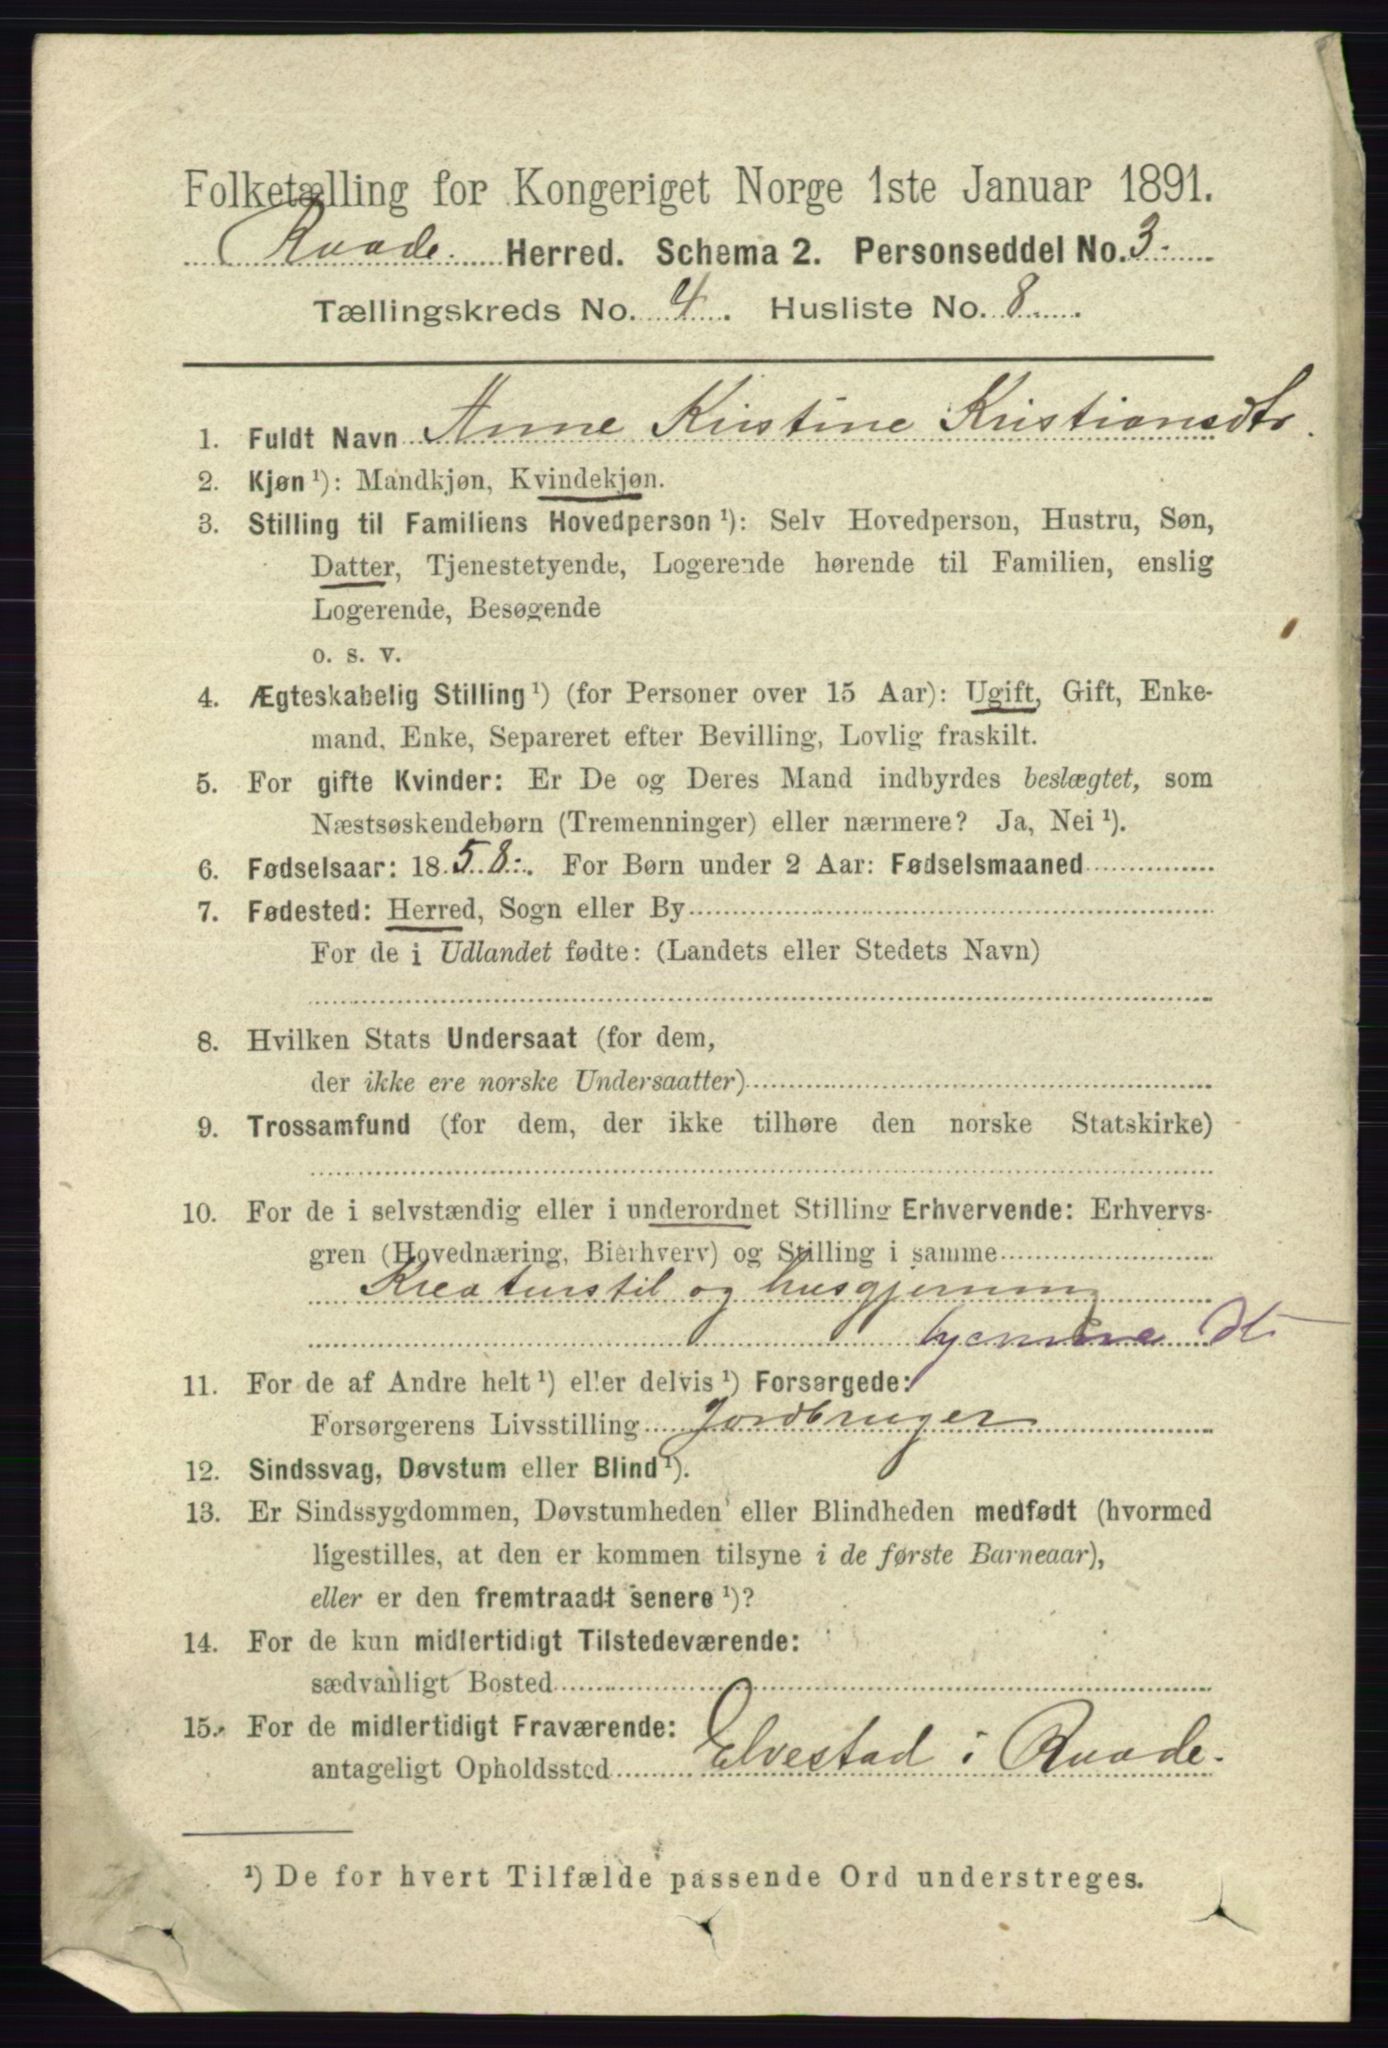 Folketælling for Kongeriget Norge 1ste Januar 1891.
Raade. Herred. Schema 2. Personseddel No. 3.
Tællingskreds No. 4. Husliste No. 8.
1. Fuldt Navn Anne Kristine Kristiansdtr.
2. Kjøn ¹): Mandkjøn, Kvindekjøn.
3. Stilling til Familiens Hovedperson ¹): Selv Hovedperson, Hustru, Søn,
Datter, Tjenestetyende, Logerende hørende til Familien, enslig
Logerende, Besøgende
o. s. v.
4. Ægteskabelig Stilling ¹) (for Personer over 15 Aar): Ugift, Gift, Enke-
mand, Enke, Separeret efter Bevilling, Lovlig fraskilt.
5. For gifte Kvinder: Er De og Deres Mand indbyrdes beslægtet, som
Næstsøskendebørn (Tremenninger) eller nærmere? Ja, Nei ¹).
6. Fødselsaar: 1858. For Børn under 2 Aar: Fødselsmaaned
7. Fødested: Herred, Sogn eller By
For de i Udlandet fødte: (Landets eller Stedets Navn)
8. Hvilken Stats Undersaat (for dem,
der ikke ere norske Undersaatter)
9. Trossamfund (for dem, der ikke tilhøre den norske Statskirke)
10. For de i selvstændig eller i underordnet Stilling Erhvervende: Erhvervs-
gren (Hovednæring, Bierhverv) og Stilling i samme
Kreaturstil og husgjerning
hjemme dt.
11. For de af Andre helt ¹) eller delvis ¹) Forsørgede:
Forsørgerens Livsstilling Jordbruger
12. Sindssvag, Døvstum eller Blind ¹).
13. Er Sindssygdommen, Døvstumheden eller Blindheden medfødt (hvormed
ligestilles, at den er kommen tilsyne i de første Barneaar),
eller er den fremtraadt senere ¹)?
14. For de kun midlertidigt Tilstedeværende:
sædvanligt Bosted
15. For de midlertidigt Fraværende:
antageligt Opholdssted Elvestad i Raade.
¹) De for hvert Tilfælde passende Ord understreges.